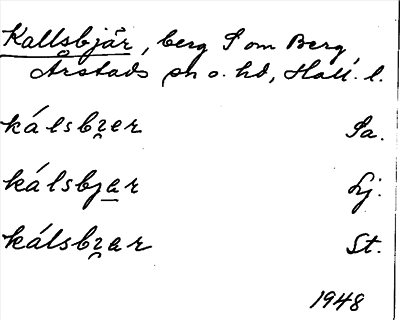 Kallsbjär, berg S om Berg
Årstads sn o. hd, Hall. l.
kálsbɀer Sa.
kálsbjar Lj.
kálsbɀar St.
1948